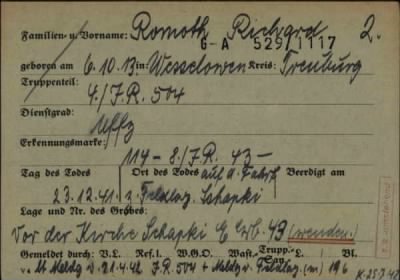 Familien- u. Vorname: Romoth Richard 2.
G-A 529/1117
geboren am 6.10.13 in: Wesselowen Kreis: Treuburg
Truppenteil: 4./J.R. 504
Dienstgrad: Uffz
Erkennungsmarke: 114 - 8./J.R. 43 -
Tag des Todes Ort des Todes auf d. Fahrt Beerdigt am
23.12.41 z. Feldlaz. Schapki
Lage und Nr. des Grabes:
Vor der Kirche Schapki E Grb. 43 (wenden.)
Gemeldet durch: V.L. Ref.l. W.G.O. Wast. Trupp. San. L. Bl.
lt. Meldg v. 21.4.42 J.R. 504 + Meldg v. Feldlaz. (m) 19
K. 25.